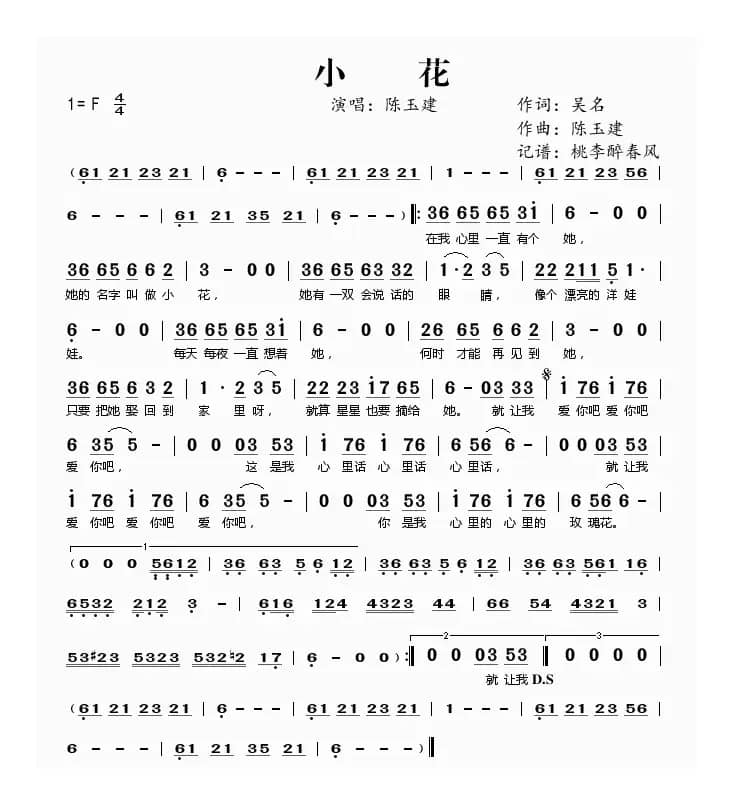 小 花
1= F 4/4 演唱：陈玉建 作词：吴名
作曲：陈玉建
记谱：桃李醉春风
( 61 21 23 21 | 6 - - - | 61 21 23 21 | 1 - - - | 61 21 23 56 |
6 - - - | 61 21 35 21 | 6 - - - ) ‖: 36 65 65 31 | 6 - 0 0 |
在我 心里 一直 有个 她，
36 65 6 6 2 | 3 - 0 0 | 36 65 63 32 | 1 · 2 3 5 | 22 211 5 1 · |
她的 名字 叫 做 小 花， 她有 一双 会说 话的 眼 睛， 像个 漂亮的 洋 娃
6 - 0 0 | 36 65 65 31 | 6 - 0 0 | 26 65 6 6 2 | 3 - 0 0 |
娃。 每天 每夜 一直 想着 她， 何时 才能 再 见 到 她，
36 65 6 3 2 | 1 · 2 3 5 | 22 23 17 65 | 6 - 03 33 | 1 76 1 76 |
只要 把她 娶 回 到 家 里 呀， 就算 星星 也要 摘给 她。 就 让我 爱 你吧 爱 你吧
6 35 5 - | 0 0 03 53 | 1 76 1 76 | 6 56 6 - | 0 0 03 53 |
爱 你吧， 这 是我 心 里话 心 里话 心 里话， 就 让我
1 76 1 76 | 6 35 5 - | 0 0 03 53 | 1 76 1 76 | 6 56 6 - |
爱 你吧 爱 你吧 爱 你吧， 你 是我 心 里的 心 里的 玫 瑰花。
1
( 0 0 0 5612 | 36 63 5 6 12 | 36 63 5 6 12 | 36 63 561 16 |
6532 212 3 - | 616 124 4323 44 | 66 54 4321 3 |
53#23 5323 532♮2 17 | 6 - 0 0 ) :‖ 2 0 0 03 53 ‖ 3 0 0 0 0 |
就 让我 D.S
( 61 21 23 21 | 6 - - - | 61 21 23 21 | 1 - - - | 61 21 23 56 |
6 - - - | 61 21 35 21 | 6 - - - ) ‖